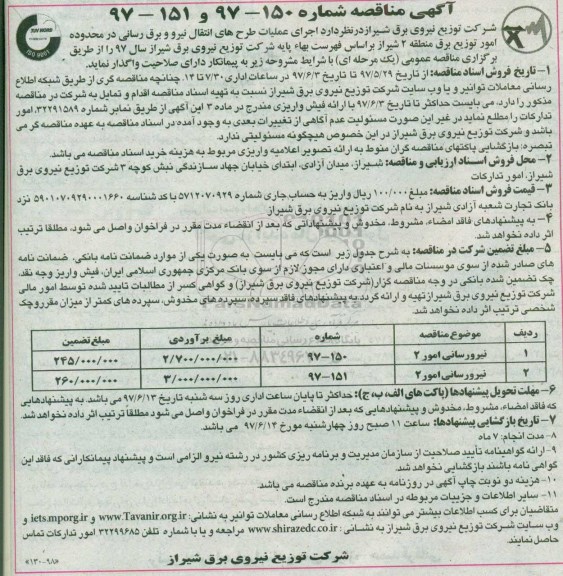 آگهی مناقصه شماره ۱۵۰-۹۷ و ۱۵۱-۹۷
شرکت توزیع نیروی برق شیراز در نظر دارد اجرای عملیات طرح های انتقال نیرو و برق رسانی در محدوده
امور توزیع برق منطقه ۲ شیراز بر اساس فهرست بهاء پایه شرکت توزیع نیروی برق شیراز سال ۹۷ را از طریق
برگزاری مناقصه عمومی (یک مرحله ای) با شرایط مشروحه زیر به پیمانکار دارای صلاحیت واگذار نماید.
۱- تاریخ فروش اسناد مناقصه: از تاریخ ۹۷/۵/۲۹ تا تاریخ ۹۷/۶/۳ در ساعات اداری ۷/۳۰ تا ۱۴. چنانچه مناقصه گری از طریق شبکه اطلاع
رسانی معاملات توانیر و یا وب سایت شرکت توزیع نیروی برق شیراز نسبت به تهیه اسناد مناقصه اقدام و تمایل به شرکت در مناقصه
مذکور را دارد، می بایست حداکثر تا تاریخ ۹۷/۶/۳ با ارائه فیش واریزی مندرج در ماده ۳ این آگهی از طریق نمابر شماره ۳۲۲۹۱۵۸۹، امور
تدارکات را مطلع نماید در غیر این صورت مسئولیت عدم آگاهی از تغییرات بعدی به وجود آمده در اسناد مناقصه به عهده مناقصه گر می
باشد و شرکت توزیع نیروی برق شیراز در این خصوص هیچگونه مسئولیتی ندارد.
تبصره: بازگشایی پاکتهای مناقصه گران منوط به ارائه تصویر اعلامیه واریزی مربوط به هزینه خرید اسناد مناقصه می باشد.
۲- محل فروش اسناد ارزیابی و مناقصه: شیراز، میدان آزادی، ابتدای خیابان جهاد سازندگی نبش کوچه ۳ شرکت توزیع نیروی برق
شیراز، امور تدارکات
۳- قیمت فروش اسناد مناقصه: مبلغ ۱۰۰/۰۰۰ ریال واریز به حساب جاری شماره ۵۷۱۲۰۷۰۹۲۹ با کد شناسه ۵۹۰۱۰۷۰۹۲۹۰۰۰۱۶۶۰ نزد
بانک تجارت شعبه آزادی شیراز به نام شرکت توزیع نیروی برق شیراز
۴- به پیشنهادهای فاقد امضاء، مشروط، مخدوش و پیشنهاداتی که بعد از انقضاء مدت مقرر در فراخوان واصل می شود، مطلقا ترتیب
اثر داده نخواهد شد.
۵- مبلغ تضمین شرکت در مناقصه: به شرح جدول زیر است که می بایست به صورت یکی از موارد ضمانت نامه بانکی، ضمانت نامه
های صادر شده از سوی موسسات مالی و اعتباری دارای مجوز لازم از سوی بانک مرکزی جمهوری اسلامی ایران، فیش واریز وجه نقد،
چک تضمین شده بانکی در وجه مناقصه گزار (شرکت توزیع نیروی برق شیراز) و گواهی کسر از مطالبات تایید شده توسط امور مالی
شرکت توزیع نیروی برق شیراز تهیه و ارائه گردد به پیشنهادهای فاقد سپرده، سپرده های مخدوش، سپرده های کمتر از میزان مقرر و چک
شخصی ترتیب اثر داده نخواهد شد.
ردیف موضوع مناقصه شماره مبلغ برآوردی مبلغ تضمین
۱ نیرورسانی امور ۲ ۱۵۰-۹۷ ۲/۷۰۰/۰۰۰/۰۰۰ ۲۴۵/۰۰۰/۰۰۰
۲ نیرورسانی امور ۲ ۱۵۱-۹۷ ۳/۰۰۰/۰۰۰/۰۰۰ ۲۶۰/۰۰۰/۰۰۰
۶- مهلت تحویل پیشنهادها (پاکت های الف، ب، ج): حداکثر تا پایان ساعت اداری روز سه شنبه تاریخ ۹۷/۶/۱۳ می باشد. به پیشنهادهایی
که فاقد امضاء، مشروط، مخدوش و پیشنهادهایی که بعد از انقضاء مدت مقرر در فراخوان واصل می شود مطلقا ترتیب اثر داده نخواهد شد.
۷- تاریخ بازگشایی پیشنهادها: ساعت ۱۱ صبح روز چهارشنبه مورخ ۹۷/۶/۱۴ می باشد.
۸- مدت انجام: ۷ ماه
۹- ارائه گواهینامه تأیید صلاحیت از سازمان مدیریت و برنامه ریزی کشور در رشته نیرو الزامی است و پیشنهاد پیمانکارانی که فاقد این
گواهی نامه باشند بازگشایی نخواهد شد.
۱۰- هزینه دو نوبت چاپ آگهی در روزنامه به عهده برنده مناقصه می باشد.
۱۱- سایر اطلاعات و جزییات مربوطه در اسناد مناقصه مندرج است.
متقاضیان برای کسب اطلاعات بیشتر می توانند به شبکه اطلاع رسانی معاملات توانیر به نشانی: www.Tavanir.org.ir و iets.mporg.ir و
وب سایت شرکت توزیع نیروی برق شیراز به نشانی: www.shirazedc.co.ir مراجعه و یا با شماره تلفن ۳۲۲۹۹۶۸۵ امور تدارکات تماس
حاصل نمایند.
شرکت توزیع نیروی برق شیراز